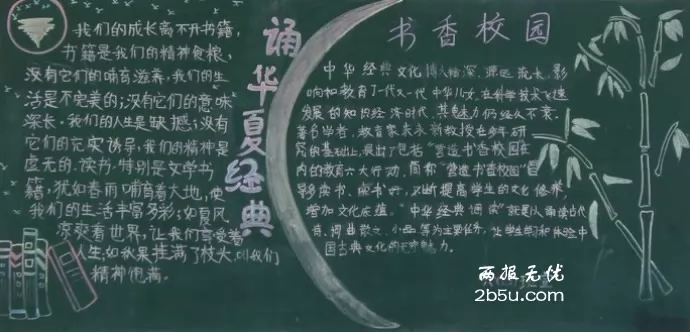 我们的成长离不开书籍,
书籍是我们的精神食粮,
没有它们的哺育滋养,我们的生
活是不完美的;没有它们的意味
深长,我们的人生是缺撼;没有
它们的充实诱导,我们的精神是
虚无的.读书,特别是文学书
籍,犹如春雨哺育着大地,使
我们的生活丰富多彩;如夏风
凉爽着世界,让我们享受着
人生,如秋果挂满了枝头,叫我们
精神饱满.
诵华夏经典
书香校园
中华经典文化,博大精深、源远流长,影
响和教育了一代又一代中华儿女,在科学技术飞速
发展的知识经济时代,其魅力仍经久不衰.
著名学者,教育家朱永新教授在多年研
究的基础上,提出了包括"营造书香校园"在
内的教育六大行动,简称"营造书香校园"倡
导多读书,读书,不断提高学生的文化修养,
增加文化底蕴."中华经典诵读"就是以诵读古代
诗、词曲散文、小品等为主要任务,让学生学习和体验中
国古典文化的无穷魅力.
两报无优
2b5u.com